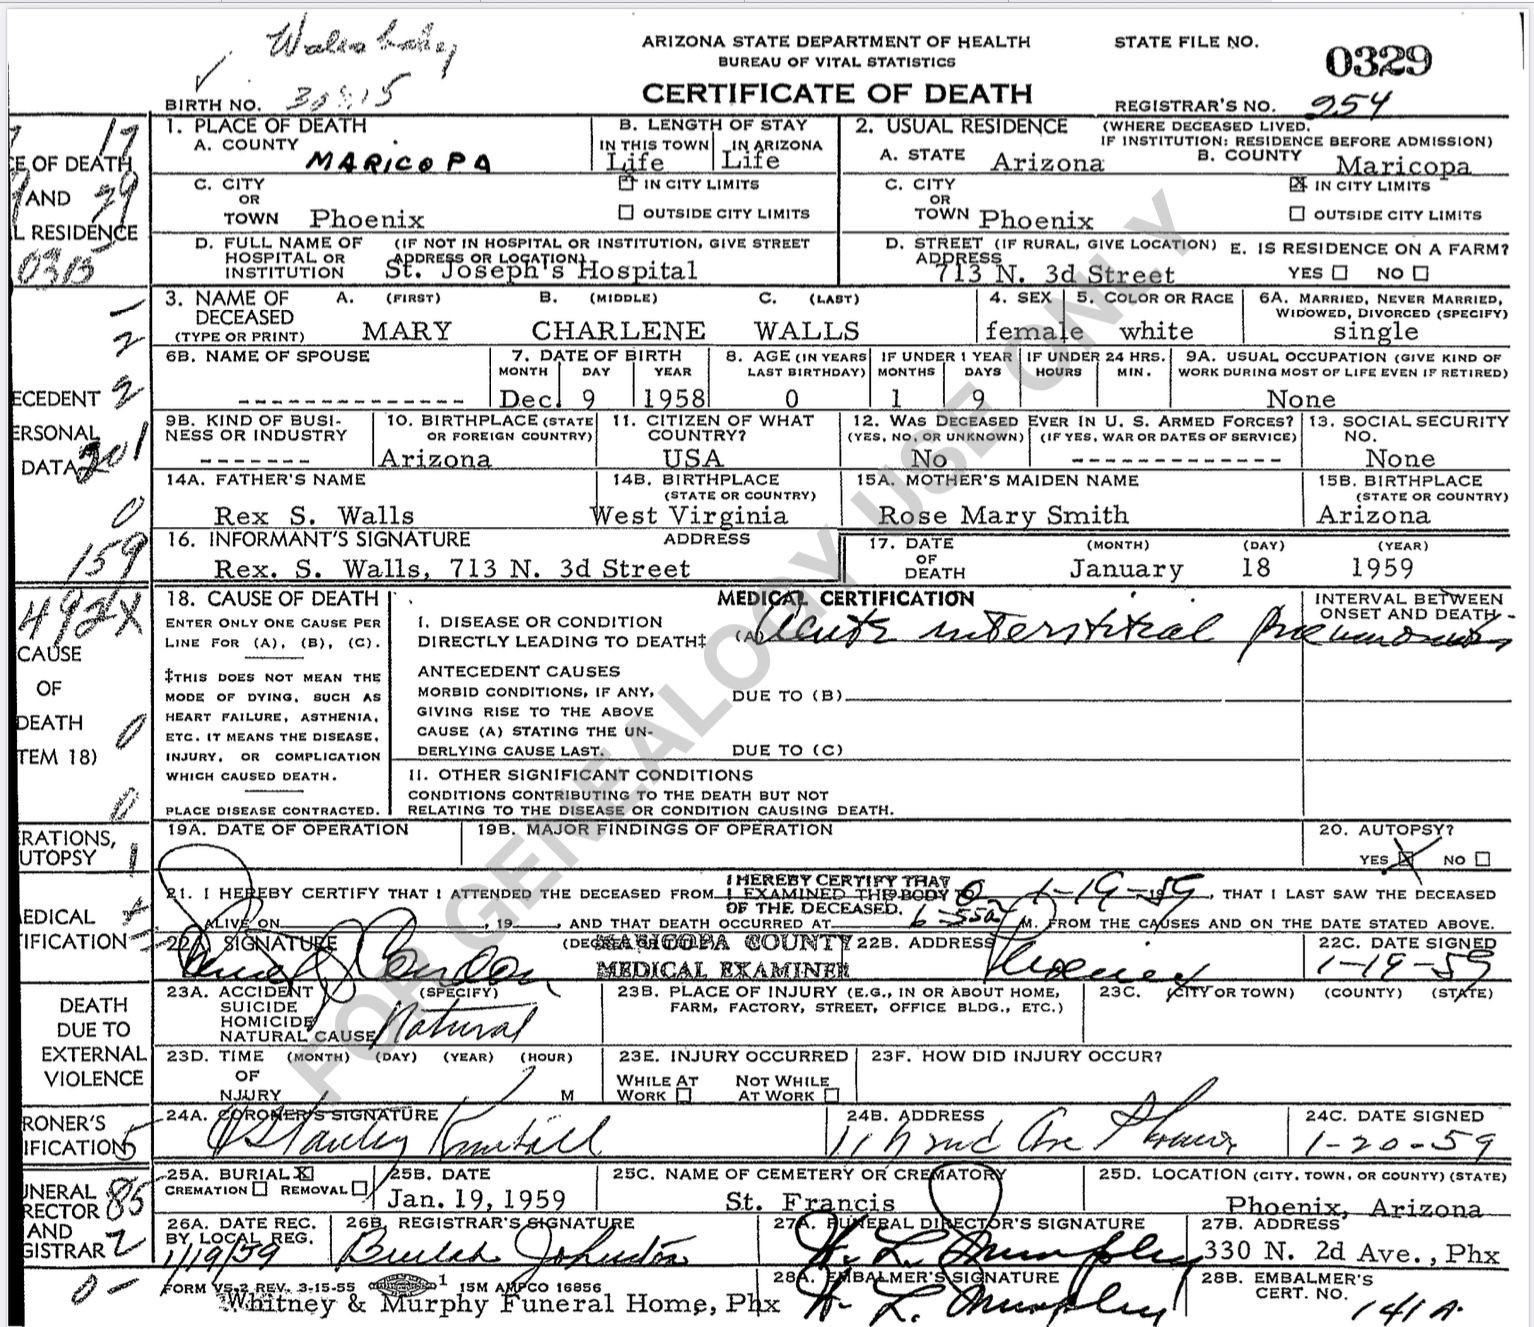 ARIZONA STATE DEPARTMENT OF HEALTH
BUREAU OF VITAL STATISTICS
CERTIFICATE OF DEATH
STATE FILE NO. 0329
REGISTRAR'S NO. 254
BIRTH NO.
1. PLACE OF DEATH
A. COUNTY MARICOPA
B. LENGTH OF STAY
IN THIS TOWN Life
IN ARIZONA Life
C. CITY OR TOWN Phoenix
IN CITY LIMITS
OUTSIDE CITY LIMITS
D. FULL NAME OF HOSPITAL OR INSTITUTION (IF NOT IN HOSPITAL OR INSTITUTION, GIVE STREET ADDRESS OR LOCATION)
St. Joseph's Hospital
2. USUAL RESIDENCE (WHERE DECEASED LIVED. IF INSTITUTION: RESIDENCE BEFORE ADMISSION)
A. STATE Arizona
B. COUNTY Maricopa
C. CITY OR TOWN Phoenix
IN CITY LIMITS
OUTSIDE CITY LIMITS
D. STREET (IF RURAL, GIVE LOCATION) ADDRESS
713 N. 3d Street
E. IS RESIDENCE ON A FARM?
YES NO
3. NAME OF DECEASED (TYPE OR PRINT)
A. (FIRST) MARY
B. (MIDDLE) CHARLENE
C. (LAST) WALLS
4. SEX female
5. COLOR OR RACE white
6A. MARRIED, NEVER MARRIED, WIDOWED, DIVORCED (SPECIFY) single
6B. NAME OF SPOUSE --------------
7. DATE OF BIRTH
MONTH Dec. DAY 9 YEAR 1958
8. AGE (IN YEARS LAST BIRTHDAY) 0
IF UNDER 1 YEAR MONTHS 1 DAYS 9
IF UNDER 24 HRS. HOURS MIN.
9A. USUAL OCCUPATION (GIVE KIND OF WORK DURING MOST OF LIFE EVEN IF RETIRED) None
9B. KIND OF BUSINESS OR INDUSTRY -------
10. BIRTHPLACE (STATE OR FOREIGN COUNTRY) Arizona
11. CITIZEN OF WHAT COUNTRY? USA
12. WAS DECEASED EVER IN U. S. ARMED FORCES?
(YES, NO, OR UNKNOWN) No
(IF YES, WAR OR DATES OF SERVICE) -------------
13. SOCIAL SECURITY NO. None
14A. FATHER'S NAME Rex S. Walls
14B. BIRTHPLACE (STATE OR COUNTRY) West Virginia
15A. MOTHER'S MAIDEN NAME Rose Mary Smith
15B. BIRTHPLACE (STATE OR COUNTRY) Arizona
16. INFORMANT'S SIGNATURE ADDRESS
Rex. S. Walls, 713 N. 3d Street
17. DATE OF DEATH
(MONTH) January (DAY) 18 (YEAR) 1959
18. CAUSE OF DEATH
ENTER ONLY ONE CAUSE PER LINE FOR (A), (B), (C).
‡THIS DOES NOT MEAN THE MODE OF DYING, SUCH AS HEART FAILURE, ASTHENIA, ETC. IT MEANS THE DISEASE, INJURY, OR COMPLICATION WHICH CAUSED DEATH.
PLACE DISEASE CONTRACTED.
MEDICAL CERTIFICATION
INTERVAL BETWEEN ONSET AND DEATH
I. DISEASE OR CONDITION DIRECTLY LEADING TO DEATH‡ (A) Acute interstitial pneumonitis
ANTECEDENT CAUSES
MORBID CONDITIONS, IF ANY, GIVING RISE TO THE ABOVE CAUSE (A) STATING THE UNDERLYING CAUSE LAST.
DUE TO (B)
DUE TO (C)
II. OTHER SIGNIFICANT CONDITIONS
CONDITIONS CONTRIBUTING TO THE DEATH BUT NOT RELATING TO THE DISEASE OR CONDITION CAUSING DEATH.
19A. DATE OF OPERATION
19B. MAJOR FINDINGS OF OPERATION
20. AUTOPSY?
YES NO
21. I HEREBY CERTIFY THAT I ATTENDED THE DECEASED FROM 1-19-59, THAT I LAST SAW THE DECEASED
I HEREBY CERTIFY THAT I EXAMINED THE BODY OF THE DECEASED.
ALIVE ON , 19 , AND THAT DEATH OCCURRED AT 6-55a M. FROM THE CAUSES AND ON THE DATE STATED ABOVE.
22A. SIGNATURE
MARICOPA COUNTY
MEDICAL EXAMINER
22B. ADDRESS Phoenix
22C. DATE SIGNED 1-19-59
23A. ACCIDENT SUICIDE HOMICIDE NATURAL CAUSE (SPECIFY) Natural
23B. PLACE OF INJURY (E.G., IN OR ABOUT HOME, FARM, FACTORY, STREET, OFFICE BLDG., ETC.)
23C. (CITY OR TOWN) (COUNTY) (STATE)
23D. TIME OF NJURY (MONTH) (DAY) (YEAR) (HOUR) M
23E. INJURY OCCURRED
WHILE AT WORK NOT WHILE AT WORK
23F. HOW DID INJURY OCCUR?
24A. CORONER'S SIGNATURE
24B. ADDRESS
24C. DATE SIGNED 1-20-59
25A. BURIAL CREMATION REMOVAL
25B. DATE Jan. 19, 1959
25C. NAME OF CEMETERY OR CREMATORY St. Francis
25D. LOCATION (CITY, TOWN, OR COUNTY) (STATE) Phoenix, Arizona
26A. DATE REC. BY LOCAL REG. 1/19/59
26B. REGISTRAR'S SIGNATURE Beulah Johnston
27A. FUNERAL DIRECTOR'S SIGNATURE H. L. Murphy
27B. ADDRESS 330 N. 2d Ave., Phx
28A. EMBALMER'S SIGNATURE H. L. Murphy
28B. EMBALMER'S CERT. NO. 141A
FORM VS-2 REV. 3-15-55 15M AMPCO 16856
Whitney & Murphy Funeral Home, Phx
17
CE OF DEATH
AND 29
L RESIDENCE
0315
2
ECEDENT 2
ERSONAL
DATA 201
0
159
492X
CAUSE
OF
DEATH 0
TEM 18)
0
RATIONS,
UTOPSY 1
EDICAL
TIFICATION
DEATH
DUE TO
EXTERNAL
VIOLENCE
RONER'S
IFICATION 5
UNERAL 85
RECTOR
AND
GISTRAR 2
0-
FOR GENEALOGY USE ONLY